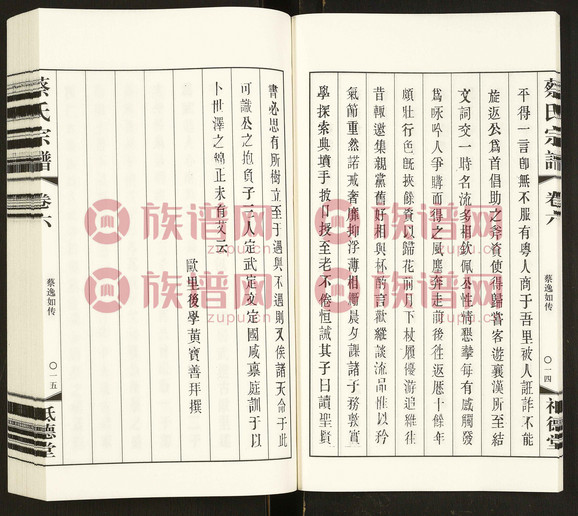 蔡氏宗譜
卷六
蔡逸如传
〇一四
祗德堂
平得一言卽無不服有粵人商于吾里被人誆詐不能
旋返公爲首倡助之斧資使得歸嘗客遊襄漢所至結
文詞交一時名流多相欽佩公性情懇摯每有感觸發
爲咏吟人爭購而得之風塵奔走前後往返歷十餘年
頗壯行色旣挾餘資以歸花前月下杖履優游追維往
昔輒邀集親黨舊好相與杯酌言歡縱談流品惟以矜
氣節重然諾戒奢靡抑浮薄相勗晨夕課諸子務敦實
學探索典墳手披口授至老不倦恒誡其子曰讀聖賢
書必思有所樹立至于遇與不遇則又俟諸天命于此
可識公之抱負子三人定武定文定國咸稟庭訓于以
卜世澤之綿正未有艾云
歐里後學黃寶善拜撰
蔡氏宗譜
卷六
蔡逸如传
〇一五
祗德堂
族谱网
zupu.cn
族谱网
zupu.cn
族谱网
zupu.cn
族谱网
zupu.cn